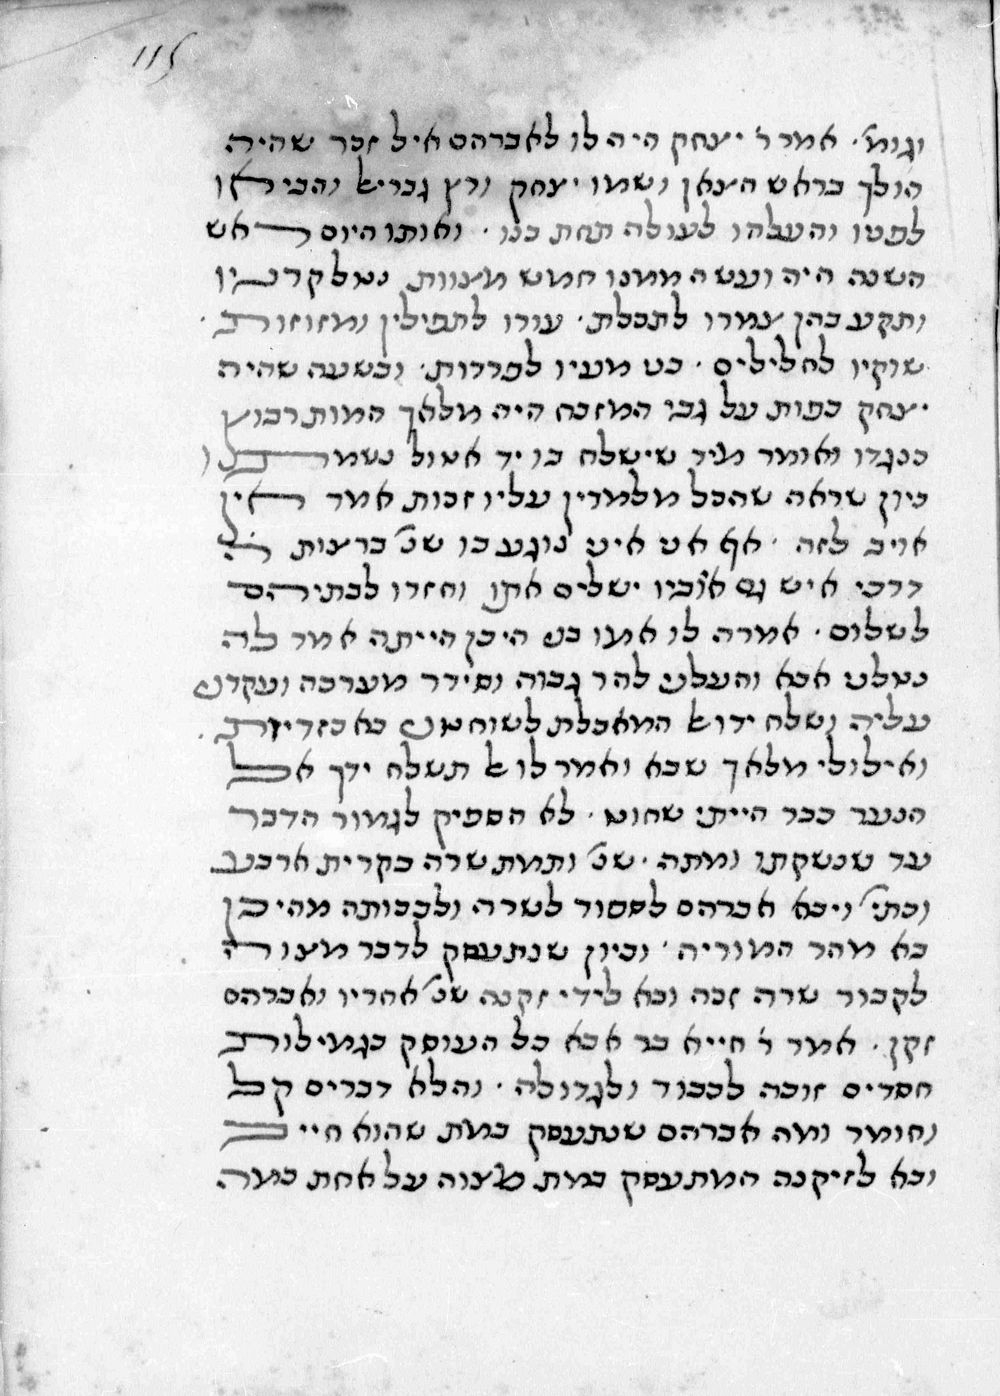 115
וגומ׳. אמר ר׳ יצחק היה לו לאברהם איל זכר שהיה
הולך בראש הצאן ושמו יצחק ורץ גבריאל והביאו
לפניו והעלהו לעולה תחת בנו. ואותו היום ראש
השנה היה ועשה ממנו חמש מצוות נטל קרניו
ותקע בהן צמרו לתכלת. עורו לתפילין ומזוזות.
שוקיו לחלילים. בני מעיו לכורות. ובשעה שהיה
יצחק כפות על גבי המזבח היה מלאך המות רבוץ
כנגדו ואומר מיד שישלח בו יד אטול נשמתו
כיון שראה שהכל מלמדין עליו זכות אמר אין
אויב לזה. אף אני איני נוגע בו שנ׳ ברצות ה׳
דרכי איש גם אויביו ישלים אתו וחזרו לבתיהם
לשלום. אמרה לו אמו בני היכן הייתה אמר לה
נטלני אבא והעלני להר גבוה וסידר מערכה ועקדני
עליה ושלח ידו אל המאכלת לשוחטני כאכזריות.
ואילולי מלאך שבא ואמר לו אל תשלח ידך אל
הנער כבר הייתי שחוט. לא הספיק לגמור הדבר
עד שנשקתו ומתה. שנ׳ ותמת שרה בקרית ארבע
וכתי׳ ויבא אברהם לספוד לשרה ולבכותה מהיכן
בא מהר המוריה. וכיון שנתעסק לדבר מצוה
לקבור שרה זכה ובא לידי זקנה שנ׳ אחריו ואברהם
זקן. אמר ר׳ חייא בר אבא כל העוסק בגמילות
חסדים זוכה לכבוד ולגדולה. והלא דברים קל
וחומר ומה אברהם שנתעסק במת שהוא חייב
ובא לזיקנה המתעסק במת מצוה על אחת כמה